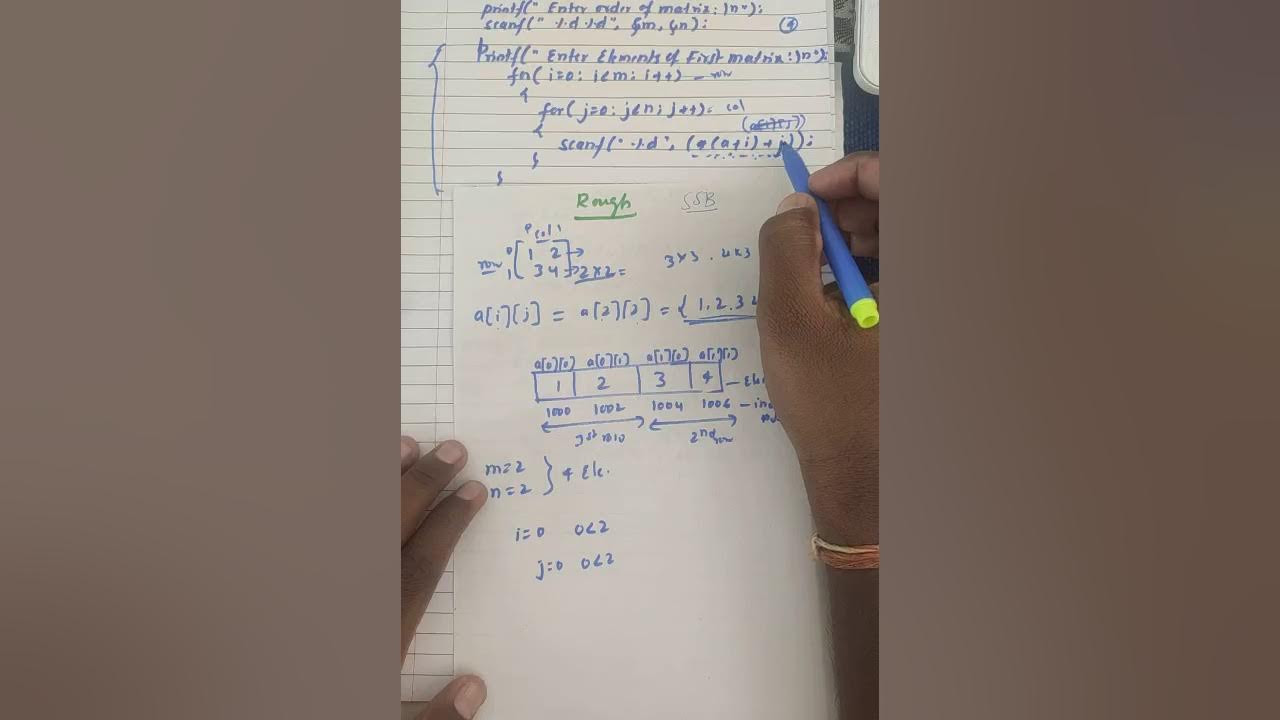 printf(" Enter order of matrix: \n");
scanf(" %d %d", &m, &n); ④
Printf(" Enter Elements of First matrix: \n");
for( i=0; i<m; i++) — row
{
for( j=0; j<n; j++) . col
{
(a[i][j])
scanf(" %d", (*(a+i)+j));
}
}
Rough SSB
0 col 1
row 0 [ 1 2 ] →
1 3 4 2×2 =
3×3 . 4×3
a[i][j] = a[2][2] = { 1,2,3
a[0][0] a[0][1] a[1][0] a[1][1]
1 2 3 4 — Ele
1000 1002 1004 1006 —
1st row 2nd row
m=2
n=2 } 4 Ele.
i=0 0<2
j=0 0<2